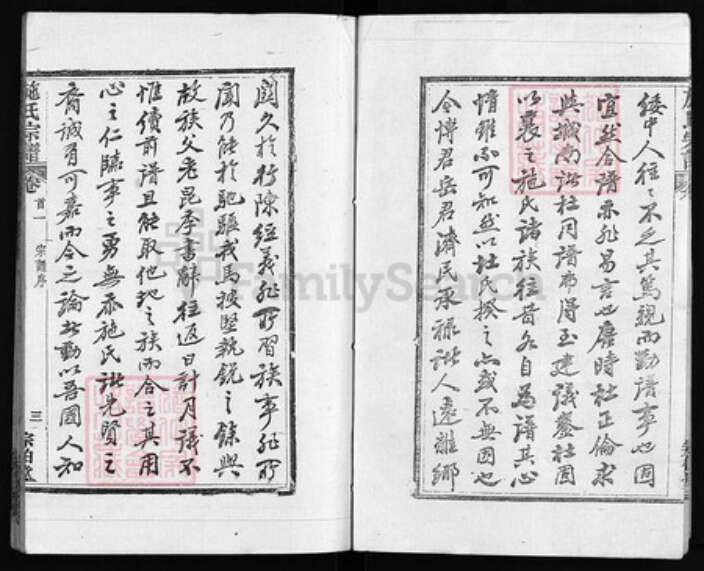 緩中人往往不乏其篤親而勤譜事也固
宜然合譜亦非易言也唐時杜正倫求
與城南諸杜同譜弗得至建議鑿杜固
以褱之施氏諸族往昔各自為譜其心
情雖不可知然以杜氏揆之亦或不無因也
今博君岳君濟民永祿諸人遠離鄉
施氏宗譜 卷首一 宗譜序 三
閭久於行陳經義非所習族事非所
聞乃能於馳驅戎馬披堅執銳之餘與
故族父老昆季書辭往返日計月議不
惟續前譜且能取他地之族而合之其用
心之仁臨事之勇無忝施氏諸先賢之
者誠有可嘉而今之論者動以吾國人知
FamilySearch